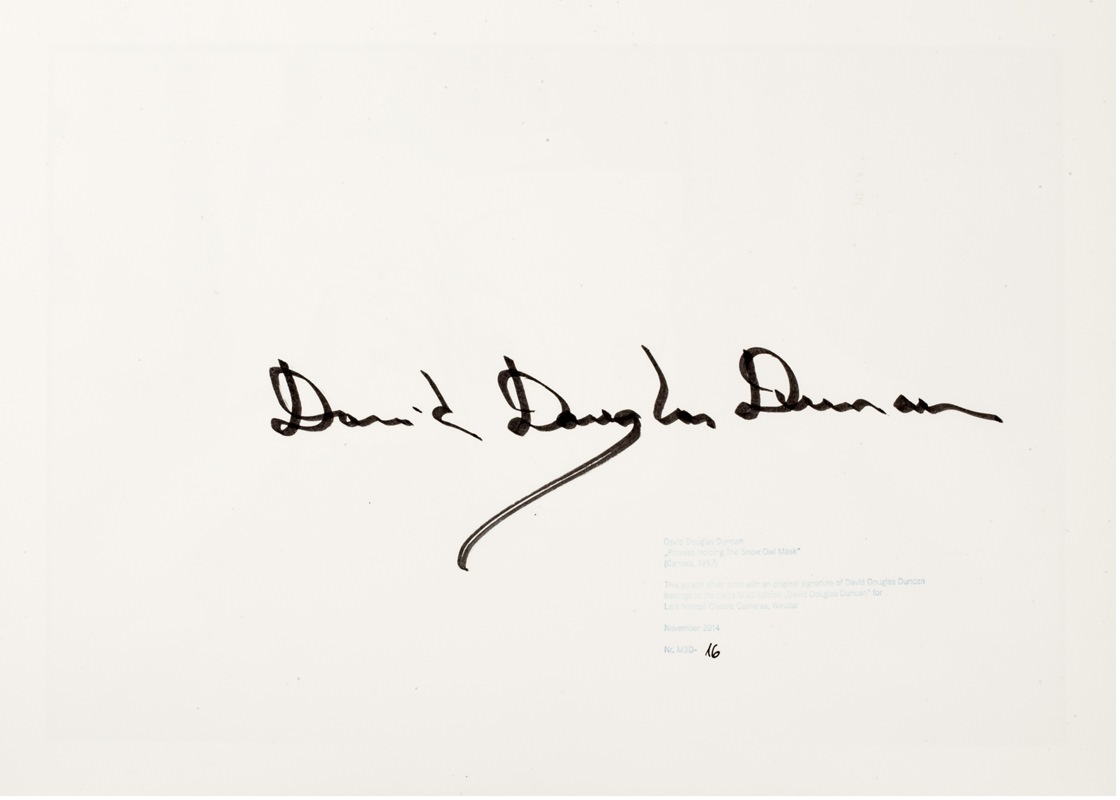 David Douglas Duncan
David Douglas Duncan
„Picasso Holding The Snow Owl Mask"
(Cannes, 1957)
This silver print with an original signature of David Douglas Duncan
belongs to the Edition „David Douglas Duncan" for
Classic Cameras, Wetzlar
November 2014
Nr. M3D- 16